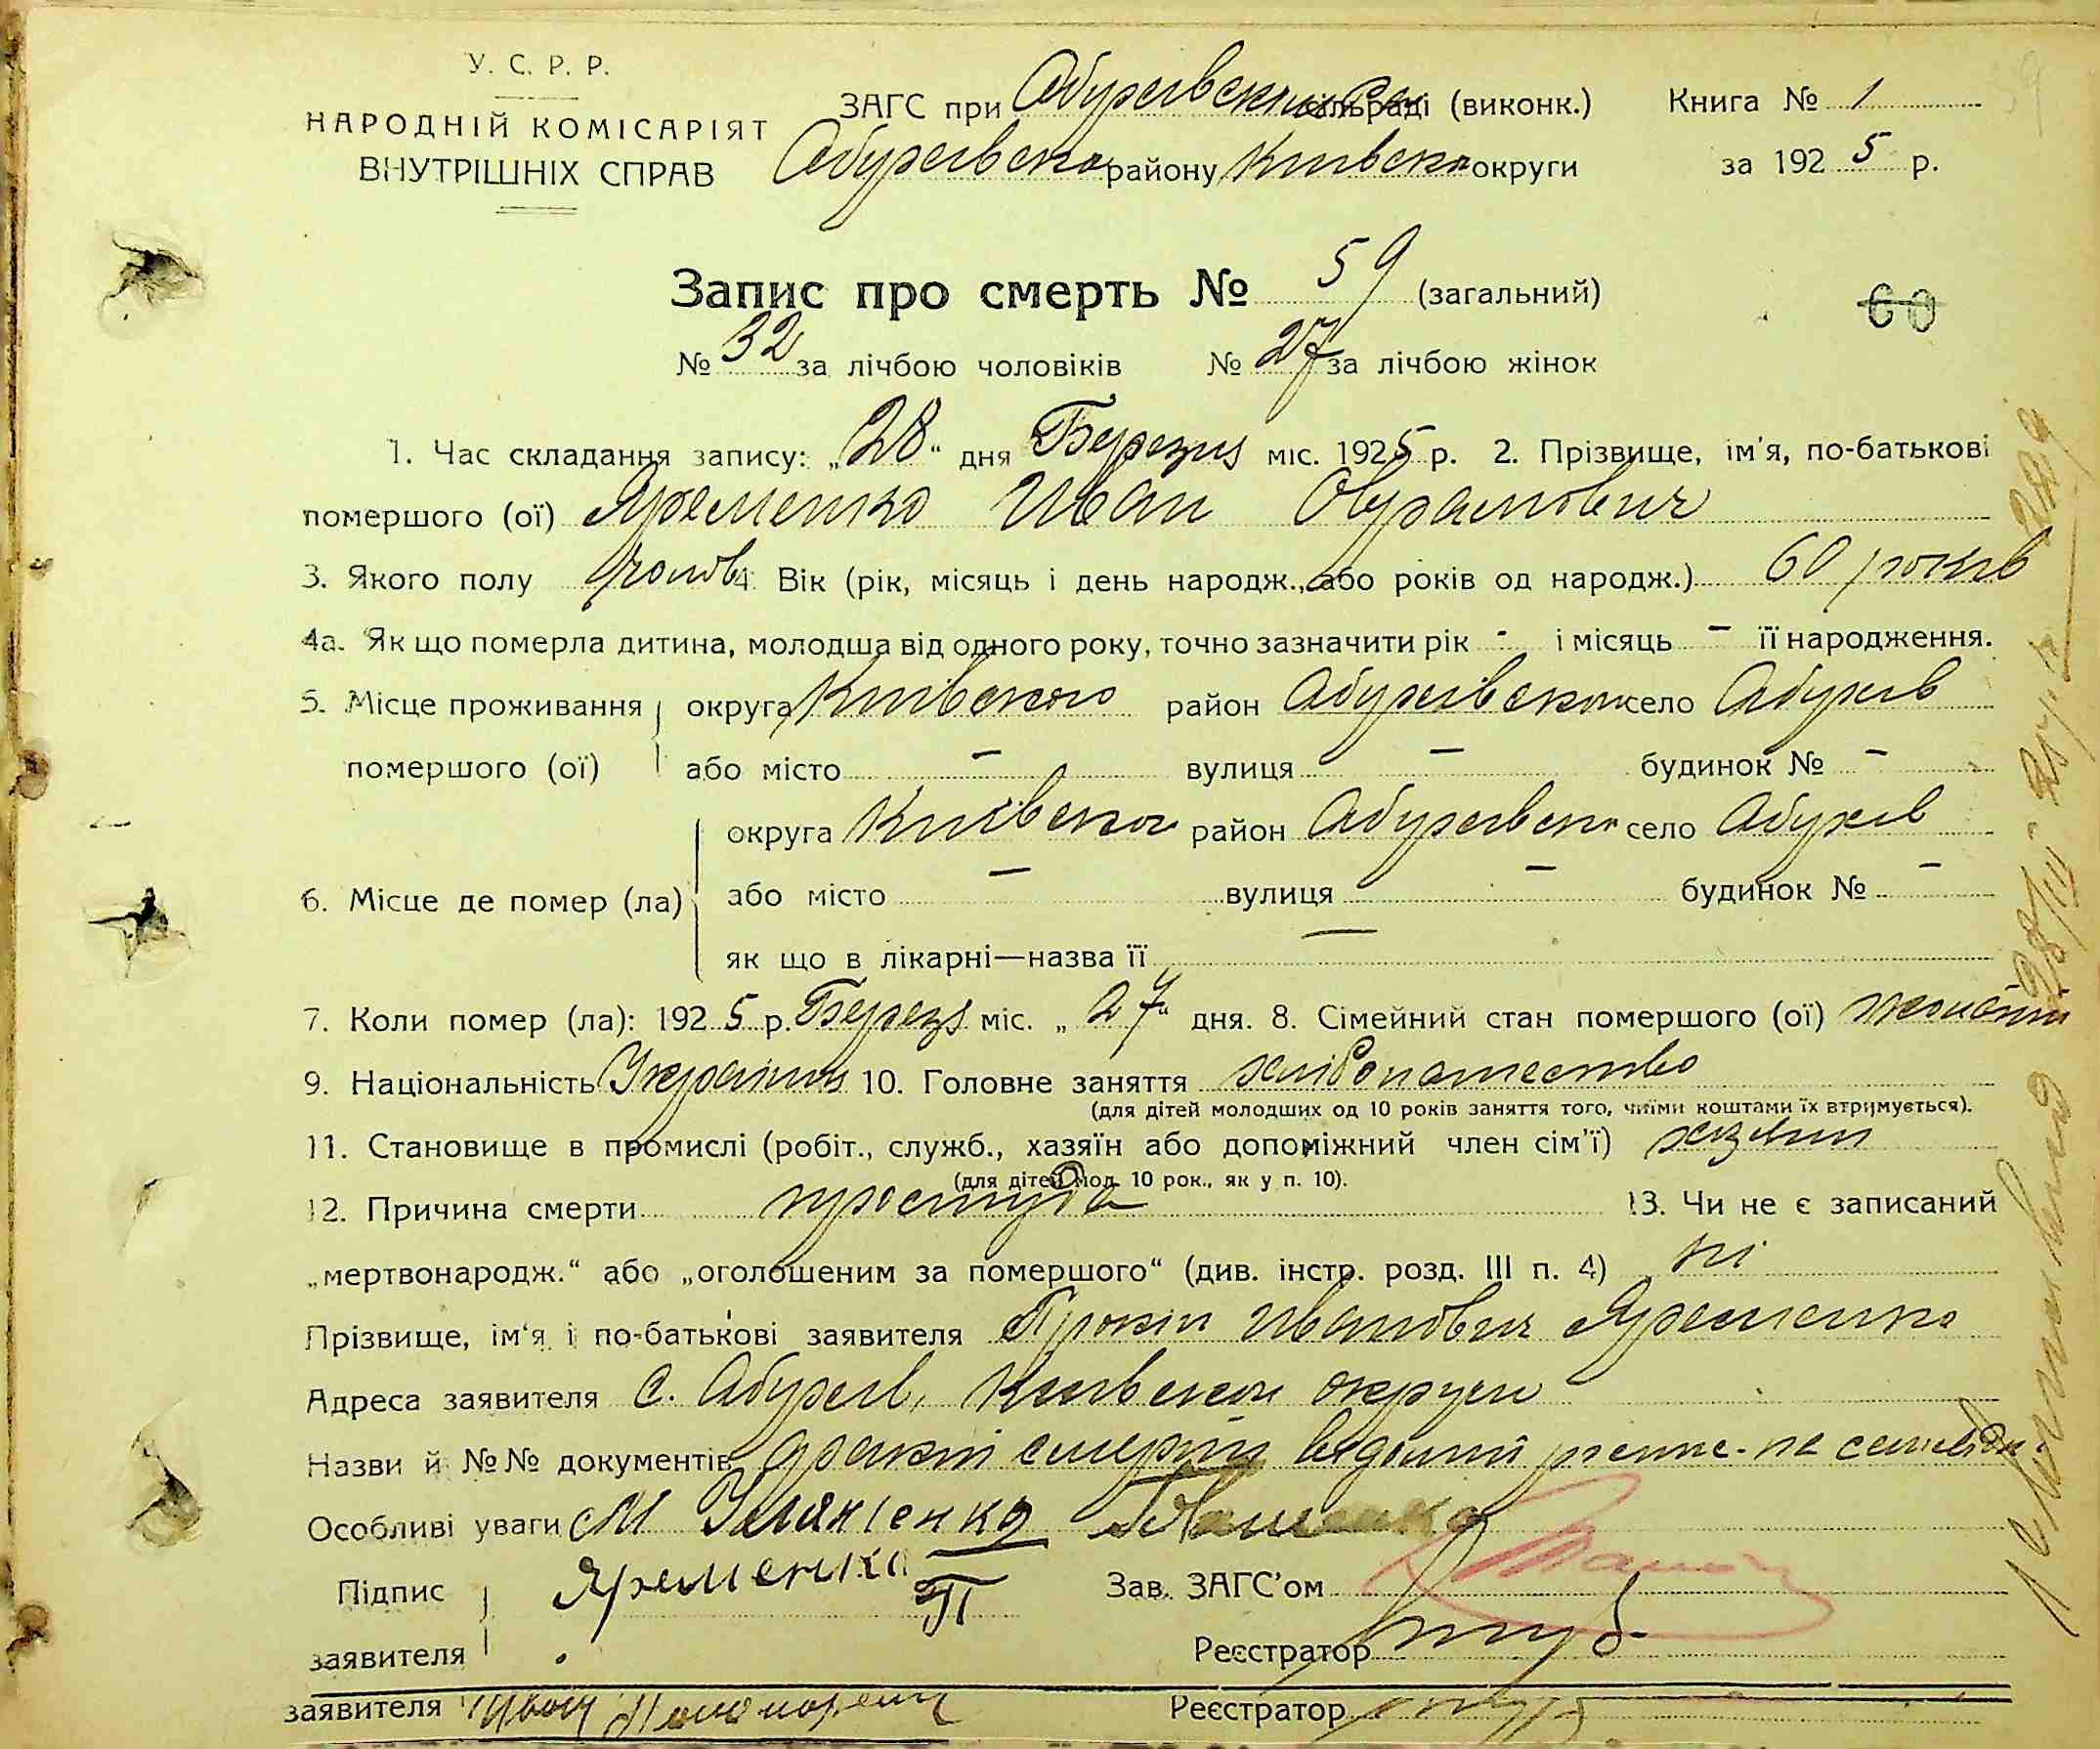 У. С. Р. Р.
НАРОДНІЙ КОМІСАРІЯТ
ВНУТРІШНІХ СПРАВ
ЗАГС при Обухівский сільраді (виконк.)
Обухівско району Київско округи
Книга № 1
за 1925 р.
Запис про смерть № 59 (загальний)
60
№ 32 за лічбою чоловіків № 27 за лічбою жінок
1. Час складання запису: „28“ дня Березня міс. 1925 р. 2. Прізвище, ім'я, по-батькові
помершого (ої) Яременко Иван
3. Якого полу чолов 4. Вік (рік, місяць і день народж., або років од народж.) 60 років
4а. Як що померла дитина, молодша від одного року, точно зазначити рік - і місяць - її народження.
5. Місце проживання округа Київского район Обухівского село Обухів
помершого (ої) або місто - вулиця - будинок № -
округа Київского район Обухівско село Обухів
6. Місце де помер (ла) або місто - вулиця - будинок № -
як що в лікарні—назва її —
7. Коли помер (ла): 1925 р. Березня міс. „27“ дня. 8. Сімейний стан помершого (ої) жонатий
9. Національність Українец 10. Головне заняття хлібопашество
(для дітей молодших од 10 років заняття того, чиїми коштами їх втримується).
11. Становище в промислі (робіт., служб., хазяїн або допоміжний член сім'ї) хазяин
(для дітей мол. 10 рок., як у п. 10).
12. Причина смерти простуда 13. Чи не є записаний
„мертвонародж.“ або „оголошеним за помершого“ (див. інстр. розд. III п. 4) ні
Прізвище, ім'я і по-батькові заявителя Прокіп Иванович Яременко
Адреса заявителя с. Обухів, Київскои округи
Назви й №№ документів факт смерти
Особливі уваги М
Підпис Яременко П Зав. ЗАГС'ом
заявителя Реєстратор
заявителя Реєстратор